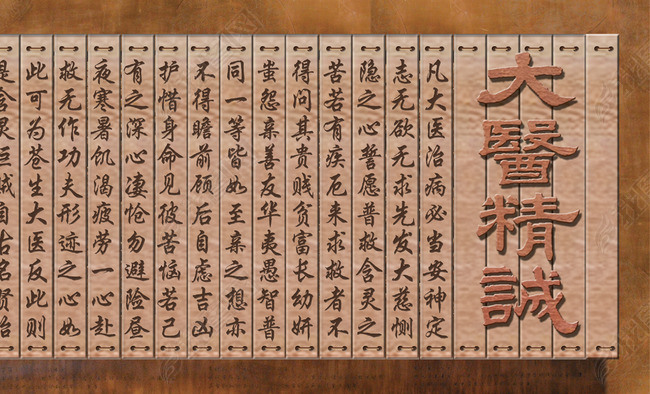 大醫精誠
凡大医治病必当安神定
志无欲无求先发大慈恻
隐之心誓愿普救含灵之
苦若有疾厄来求救者不
得问其贵贱贫富长幼妍
蚩怨亲善友华夷愚智普
同一等皆如至亲之想亦
不得瞻前顾后自虑吉凶
护惜身命见彼苦恼若己
有之深心凄怆勿避险昼
夜寒暑饥渴疲劳一心赴
救无作功夫形迹之心如
此可为苍生大医反此则
是含灵巨贼自古名贤治